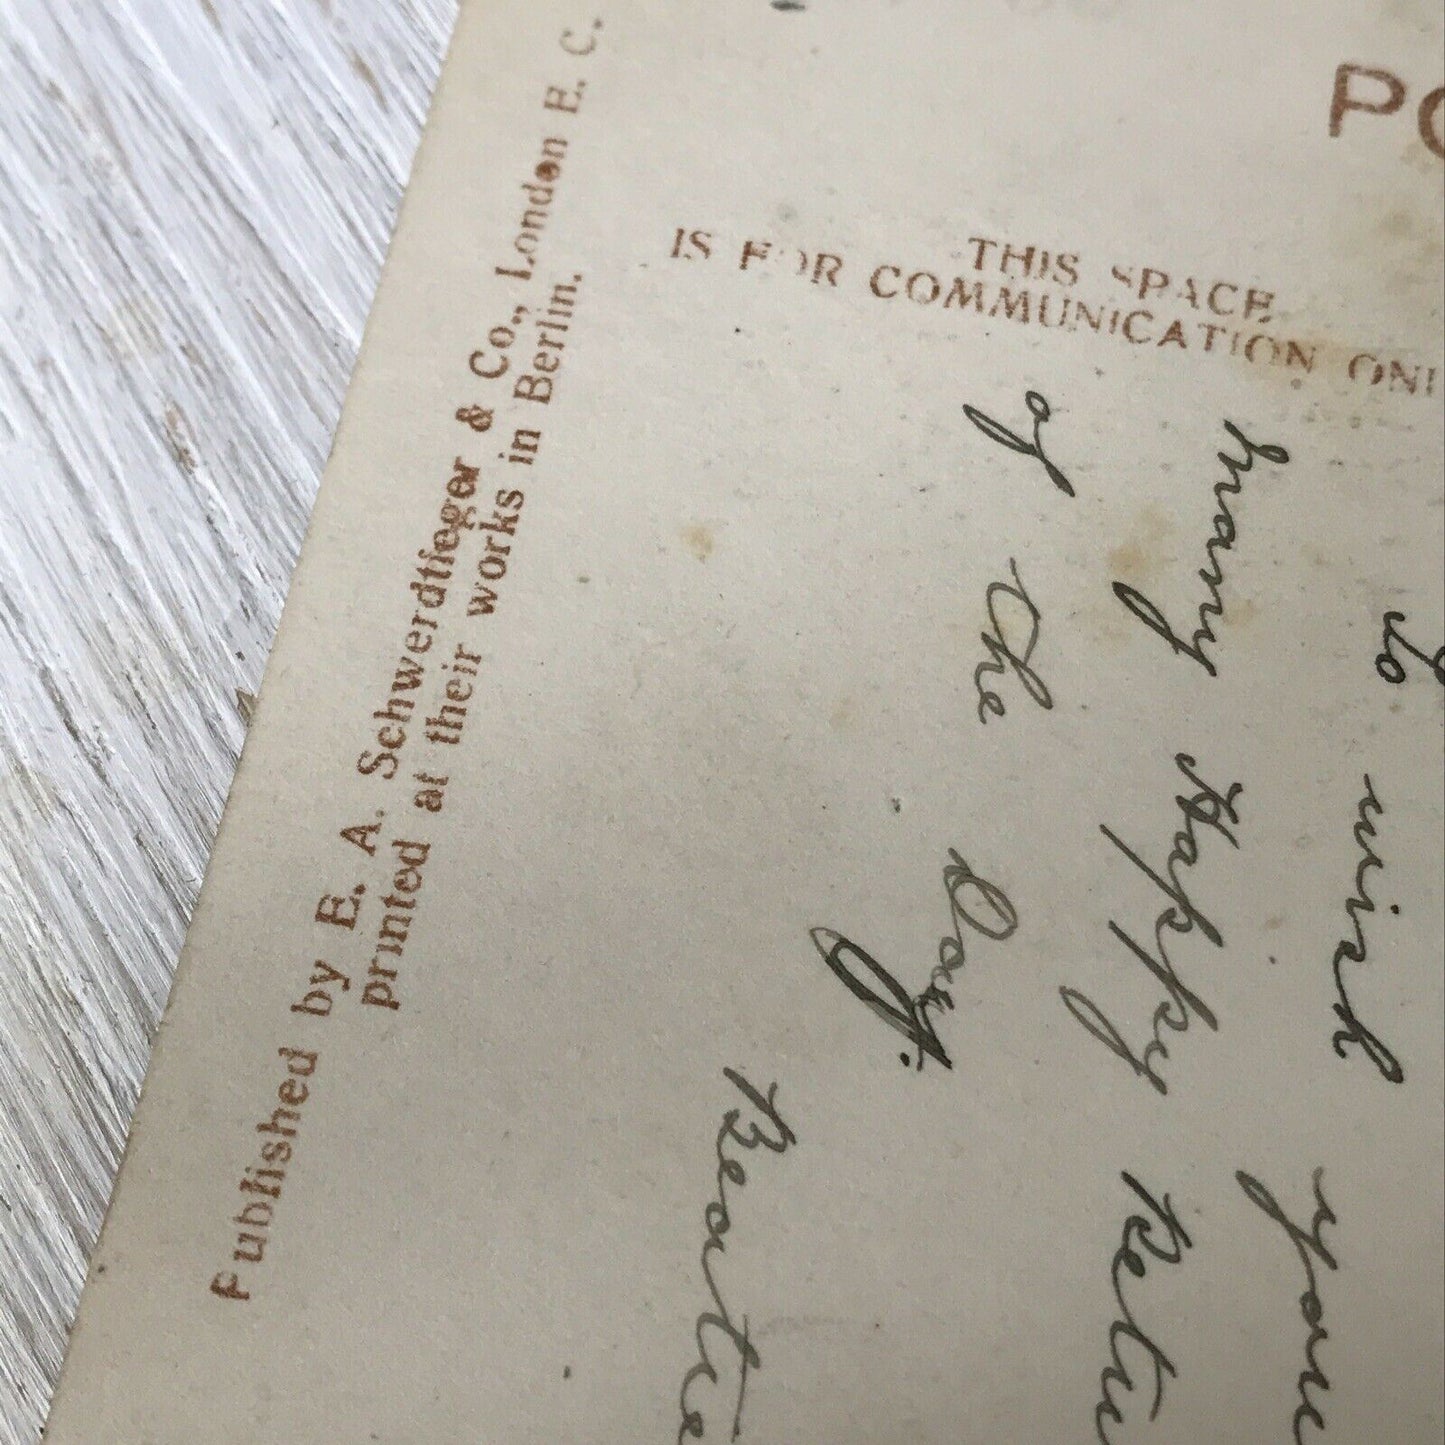 Published by E. A. Schwerdtfeger & Co., London E. C.
printed at their works in Berlin.
PO
THIS SPACE
IS FOR COMMUNICATION ONL
to wish you
many Happy Retu
of the Day.